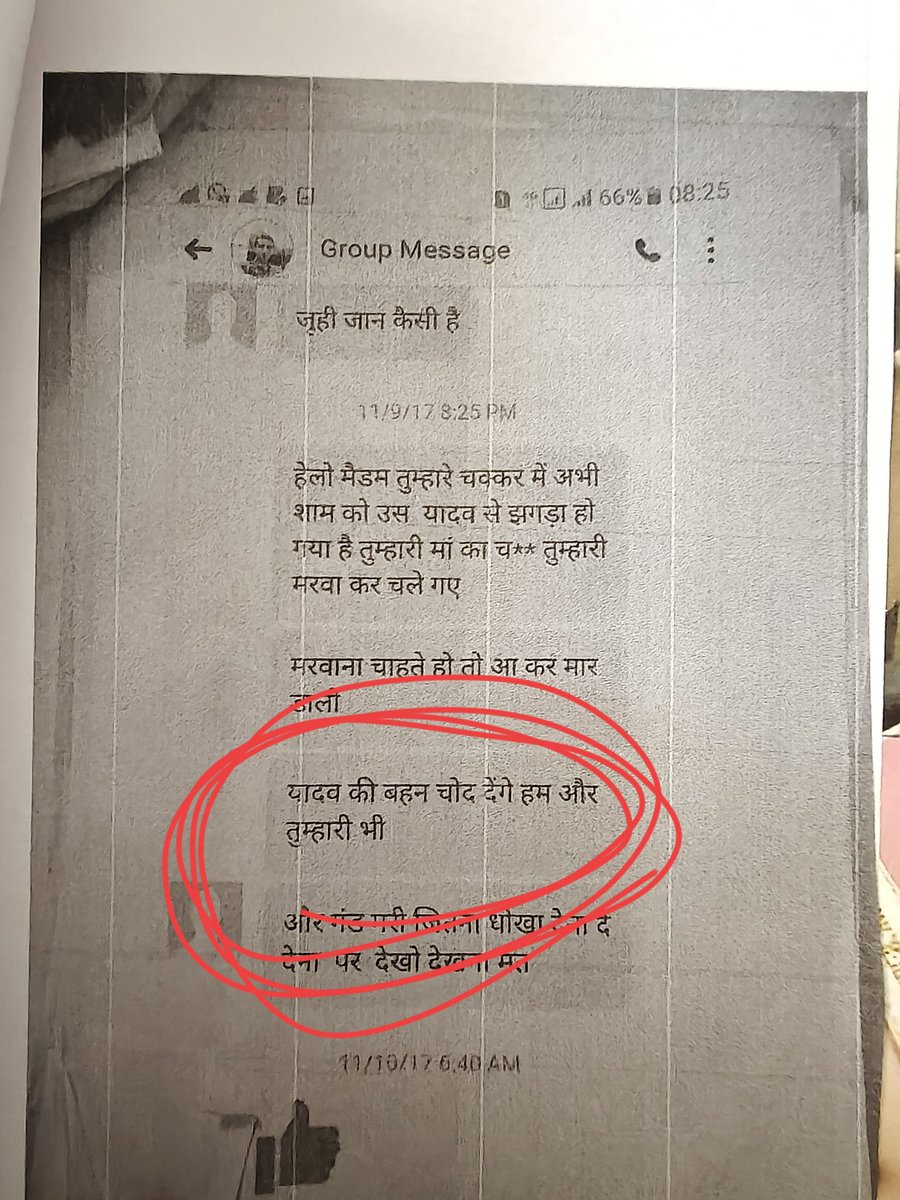 66% 08:25
Group Message
जूही जान कैसी है
11/9/17 8:25 PM
हेलो मैडम तुम्हारे चक्कर में अभी
शाम को उस यादव से झगड़ा हो
गया है तुम्हारी मां का च** तुम्हारी
मरवा कर चले गए
मरवाना चाहते हो तो आ कर मार
डालो
यादव की बहन चोद देंगे हम और
तुम्हारी भी
और धोखा
देना पर देखो देखना मत
11/10/17 6:40 AM